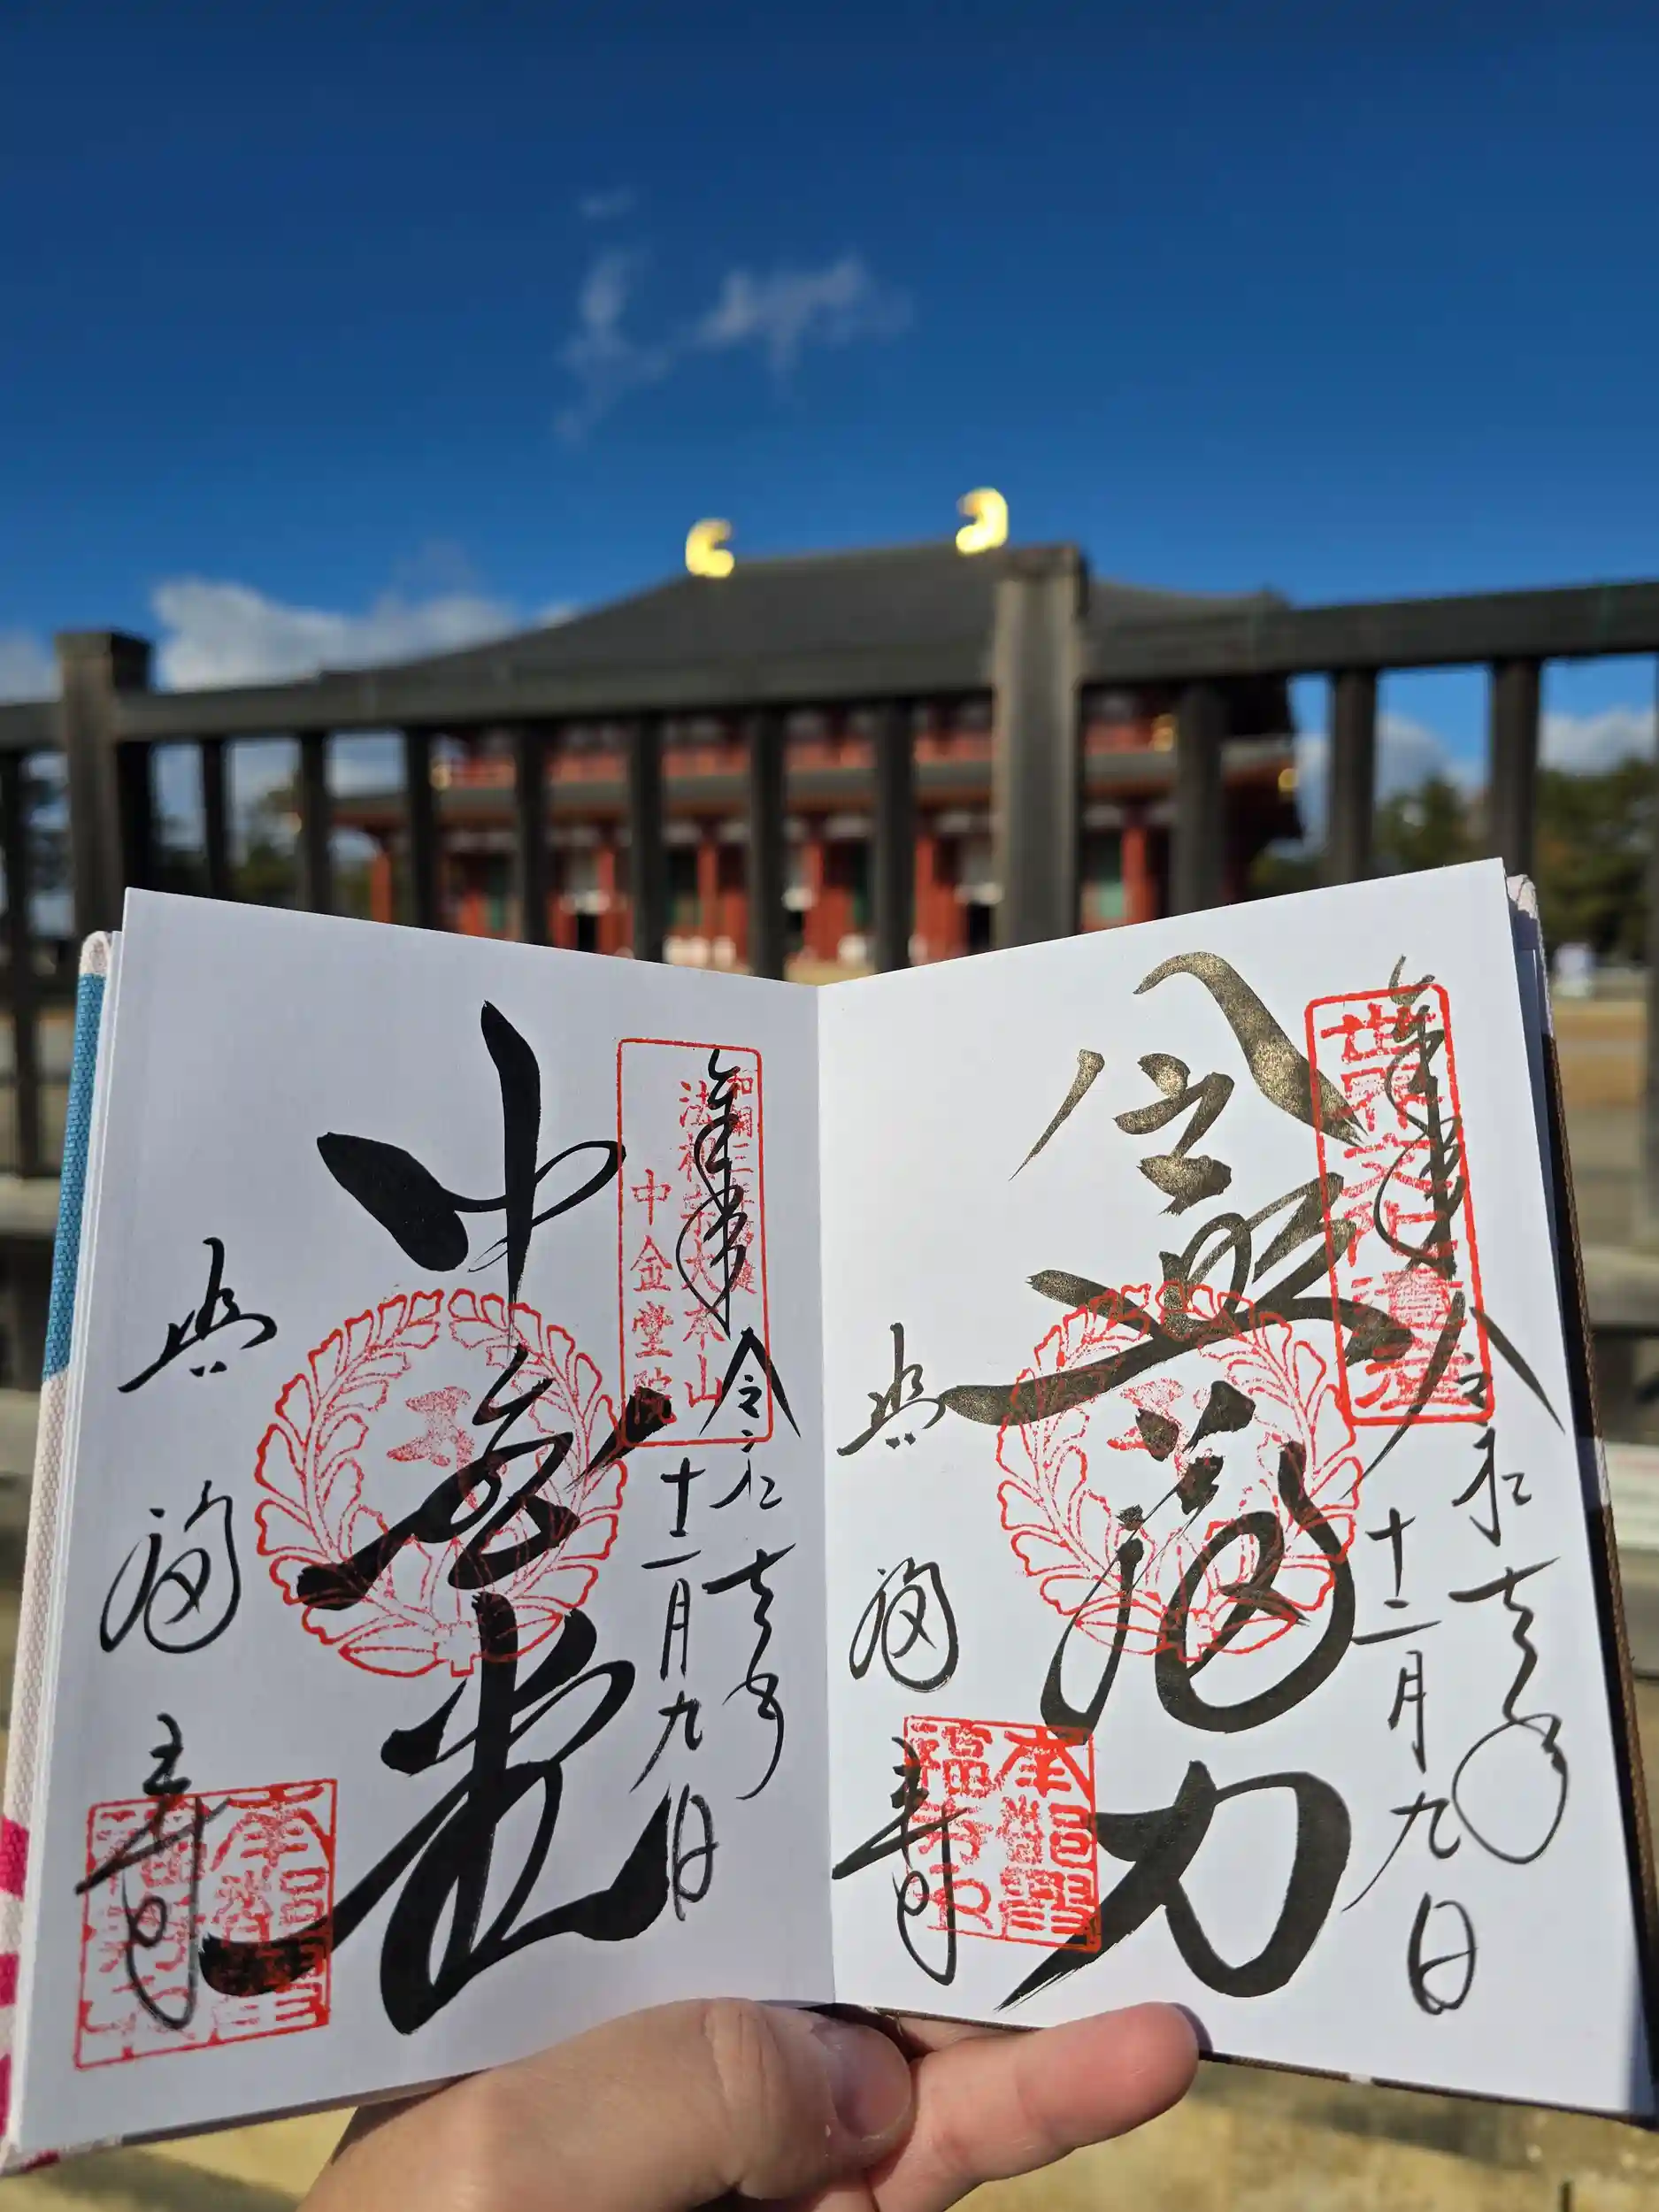 奉拝
世界文化遺産
令和七年
十二月九日
令興福力
興福寺
奉拝
和銅三年創建
法相宗大本山
中金堂院
令和七年
十二月九日
中金堂
興福寺